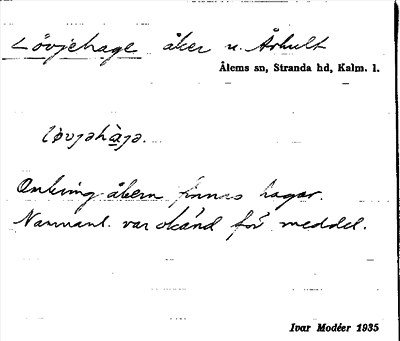 Lövjehage åker u. Århult
Ålems sn, Stranda hd, Kalm. l.
løvjəhàjə.
Omkring åkern finnas hagar.
Namnanl. var okänd för meddel.
Ivar Modéer 1935